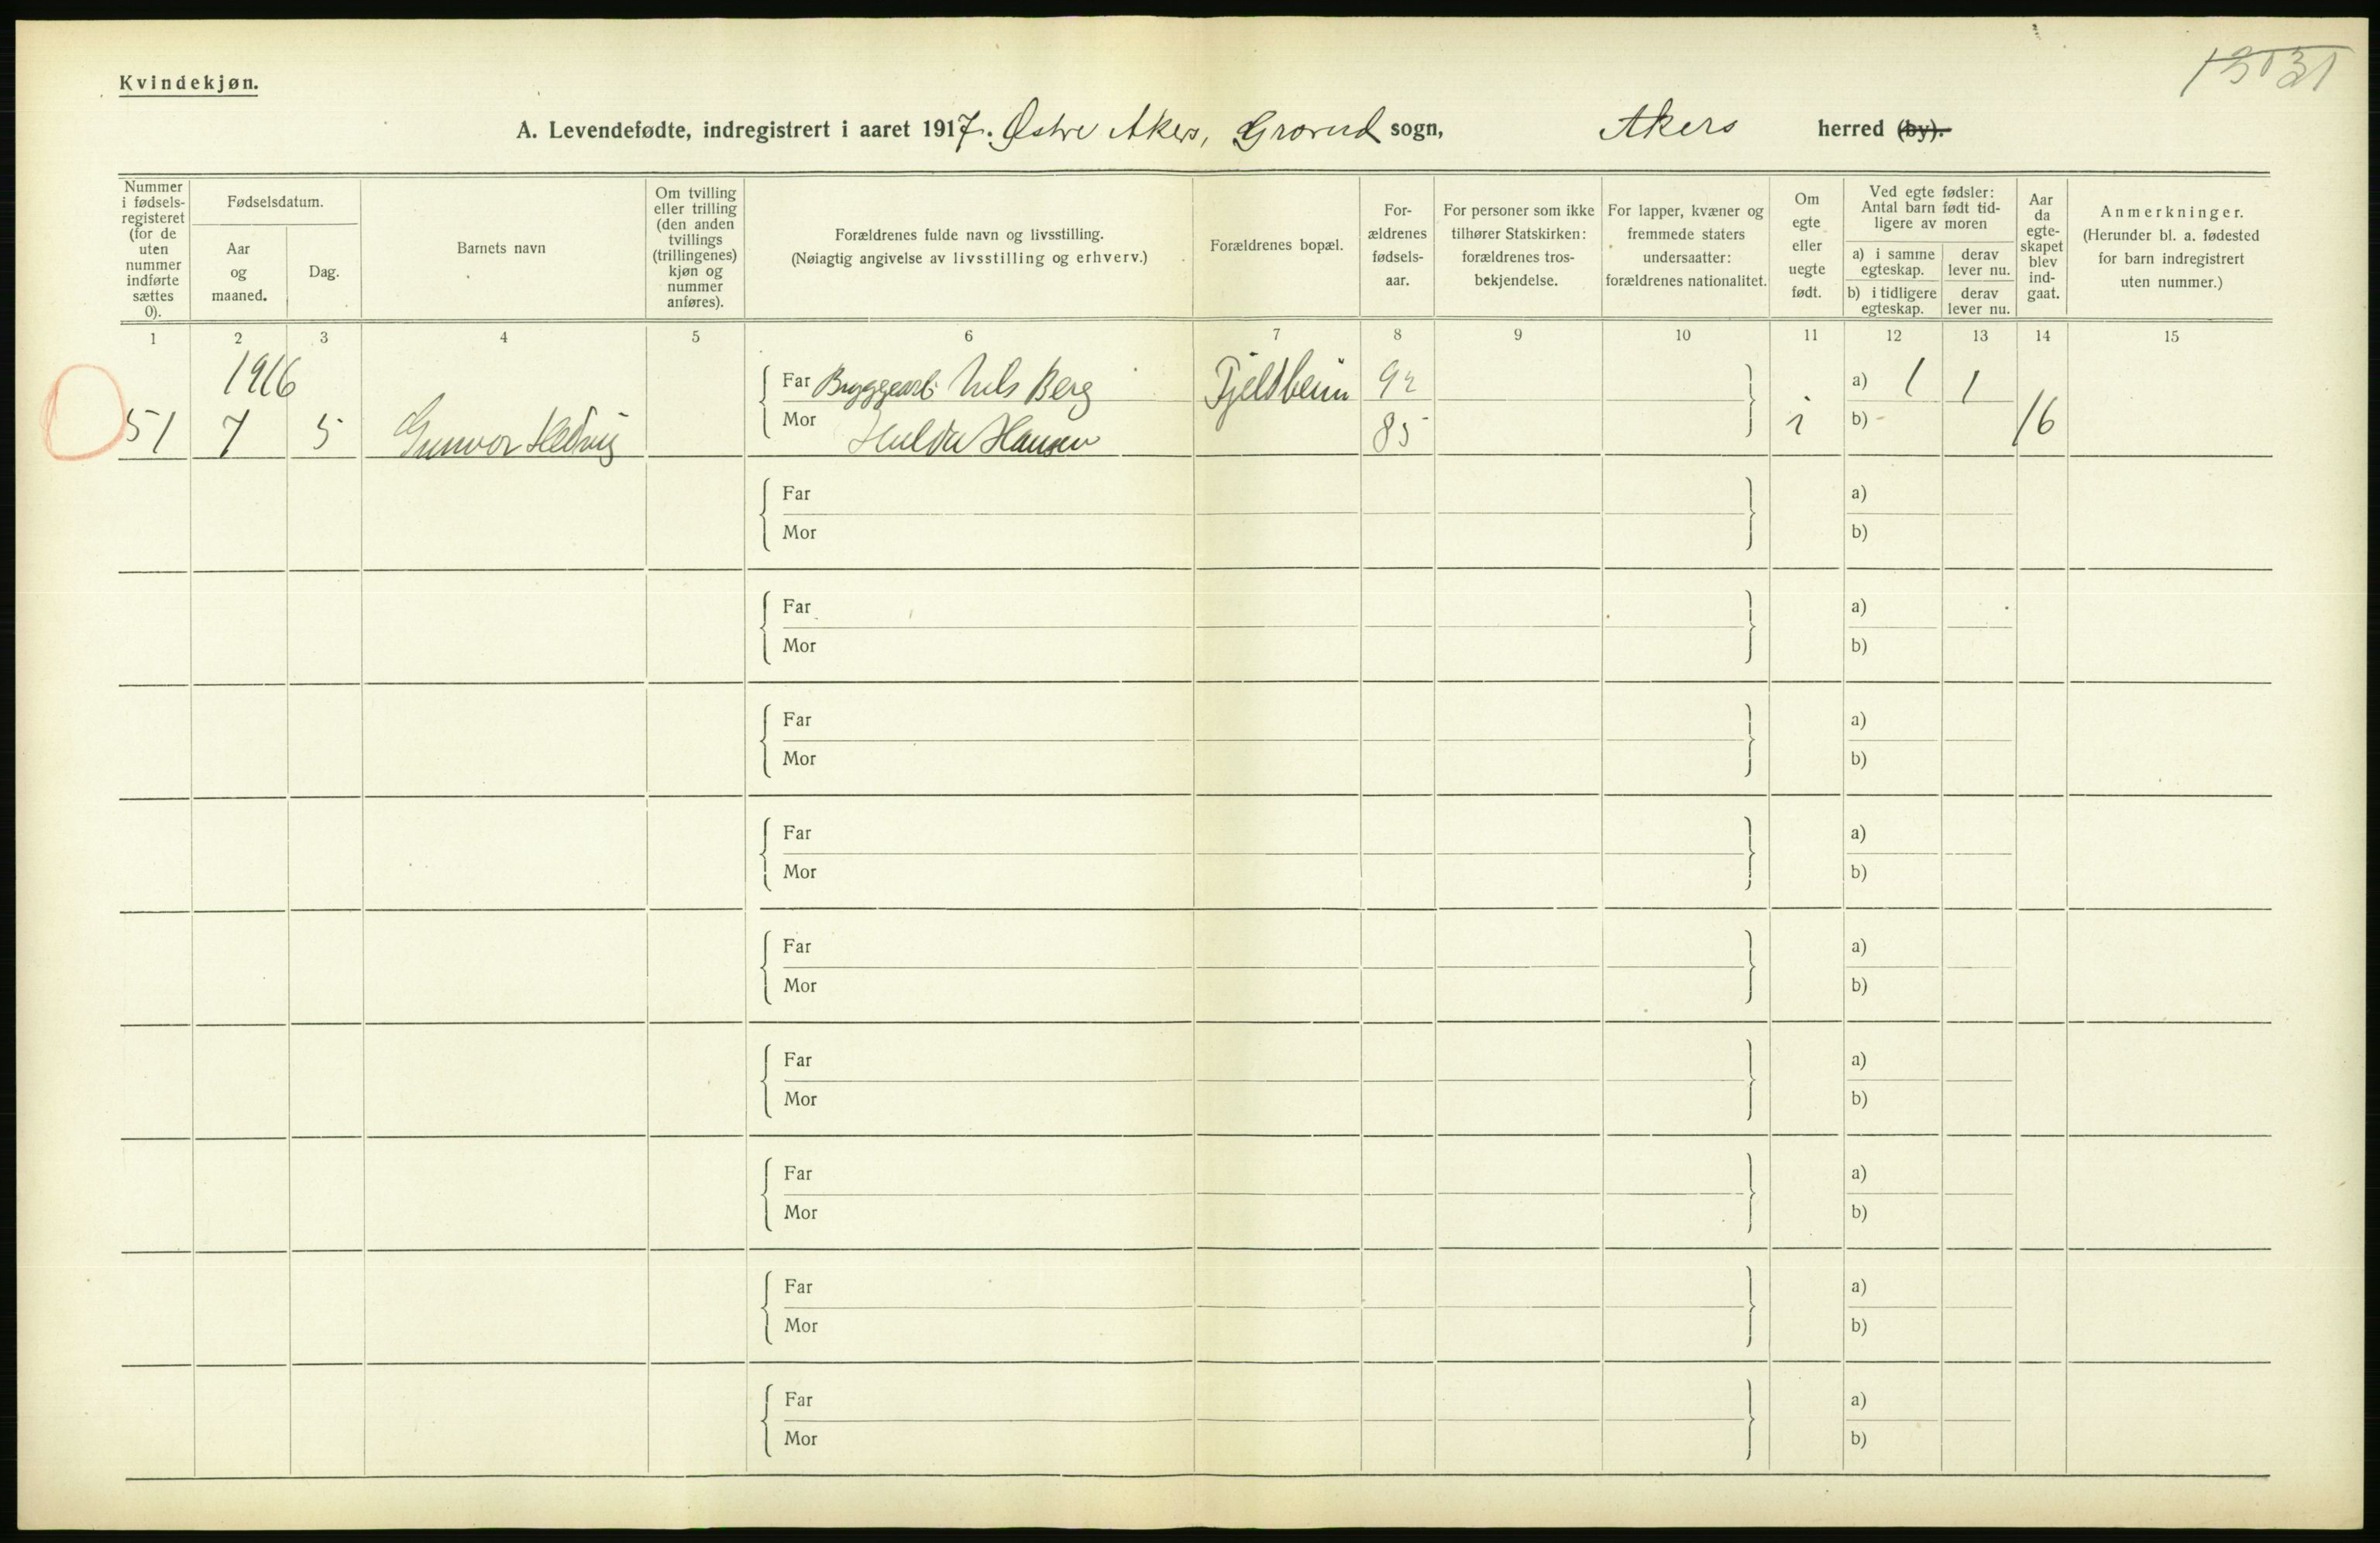 Kvindekjøn.
A. Levendefødte, indregistrert i aaret 1917. Østre Aker, Grorud sogn, Akers herred (by).
Nummer i fødsels-registeret (for de uten nummer indførte sættes 0).
Fødselsdatum.
Aar og maaned.
Dag.
Barnets navn
Om tvilling eller trilling (den anden tvillings (trillingenes) kjøn og nummer anføres).
Forældrenes fulde navn og livsstilling.
(Nøiagtig angivelse av livsstilling og erhverv.)
Forældrenes bopæl.
For-ældrenes fødsels-aar.
For personer som ikke tilhører Statskirken: forældrenes tros-bekjendelse.
For lapper, kvæner og fremmede staters undersaatter: forældrenes nationalitet.
Om egte eller uegte født.
Ved egte fødsler: Antal barn født tid-ligere av moren
a) i samme egteskap.
derav lever nu.
b) i tidligere egteskap.
derav lever nu.
Aar da egte-skapet blev ind-gaat.
Anmerkninger.
(Herunder bl. a. fødested for barn indregistrert uten nummer.)
1 2 3 4 5 6 7 8 9 10 11 12 13 14 15
1916
Far Bryggearb. Nils Berg Fjeldheim 92 a) 1 1
51 7 5 Gunvor Hedvig Mor Hulda Hansen 85 i b) - 16
Far a)
Mor b)
Far a)
Mor b)
Far a)
Mor b)
Far a)
Mor b)
Far a)
Mor b)
Far a)
Mor b)
Far a)
Mor b)
Far a)
Mor b)
Far a)
Mor b)